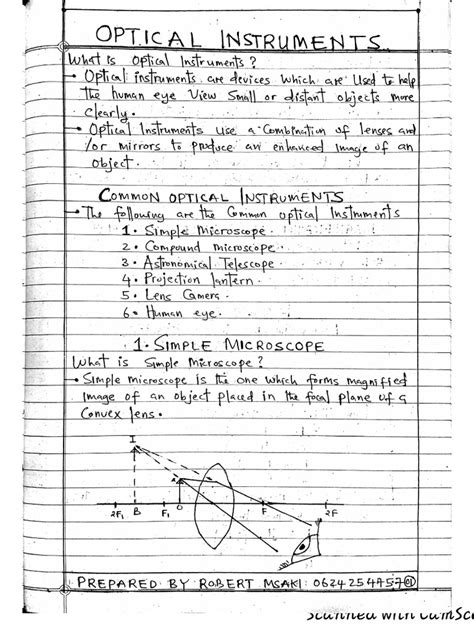 OPTICAL INSTRUMENTS
What is Optical Instruments?
• Optical instruments are devices which are Used to help
the human eye View Small or distant objects more
clearly.
• Optical Instruments use a Combination of lenses and
/or mirrors to produce an enhanced Image of an
object.
COMMON OPTICAL INSTRUMENTS
• The following are the Common optical Instruments
1. Simple Microscope.
2. Compound microscope.
3. Astronomical Telescope.
4. Projection lantern.
5. Lens Camera.
6. Human eye.
1. SIMPLE MICROSCOPE
What is Simple Microscope?
• Simple microscope is the one which forms magnified
Image of an object placed in the focal plane of a
Convex lens.
I
A
2F₁ B F₁ O F 2F
PREPARED BY ROBERT MSAKI: 0624254757 01
Scanned with CamSc